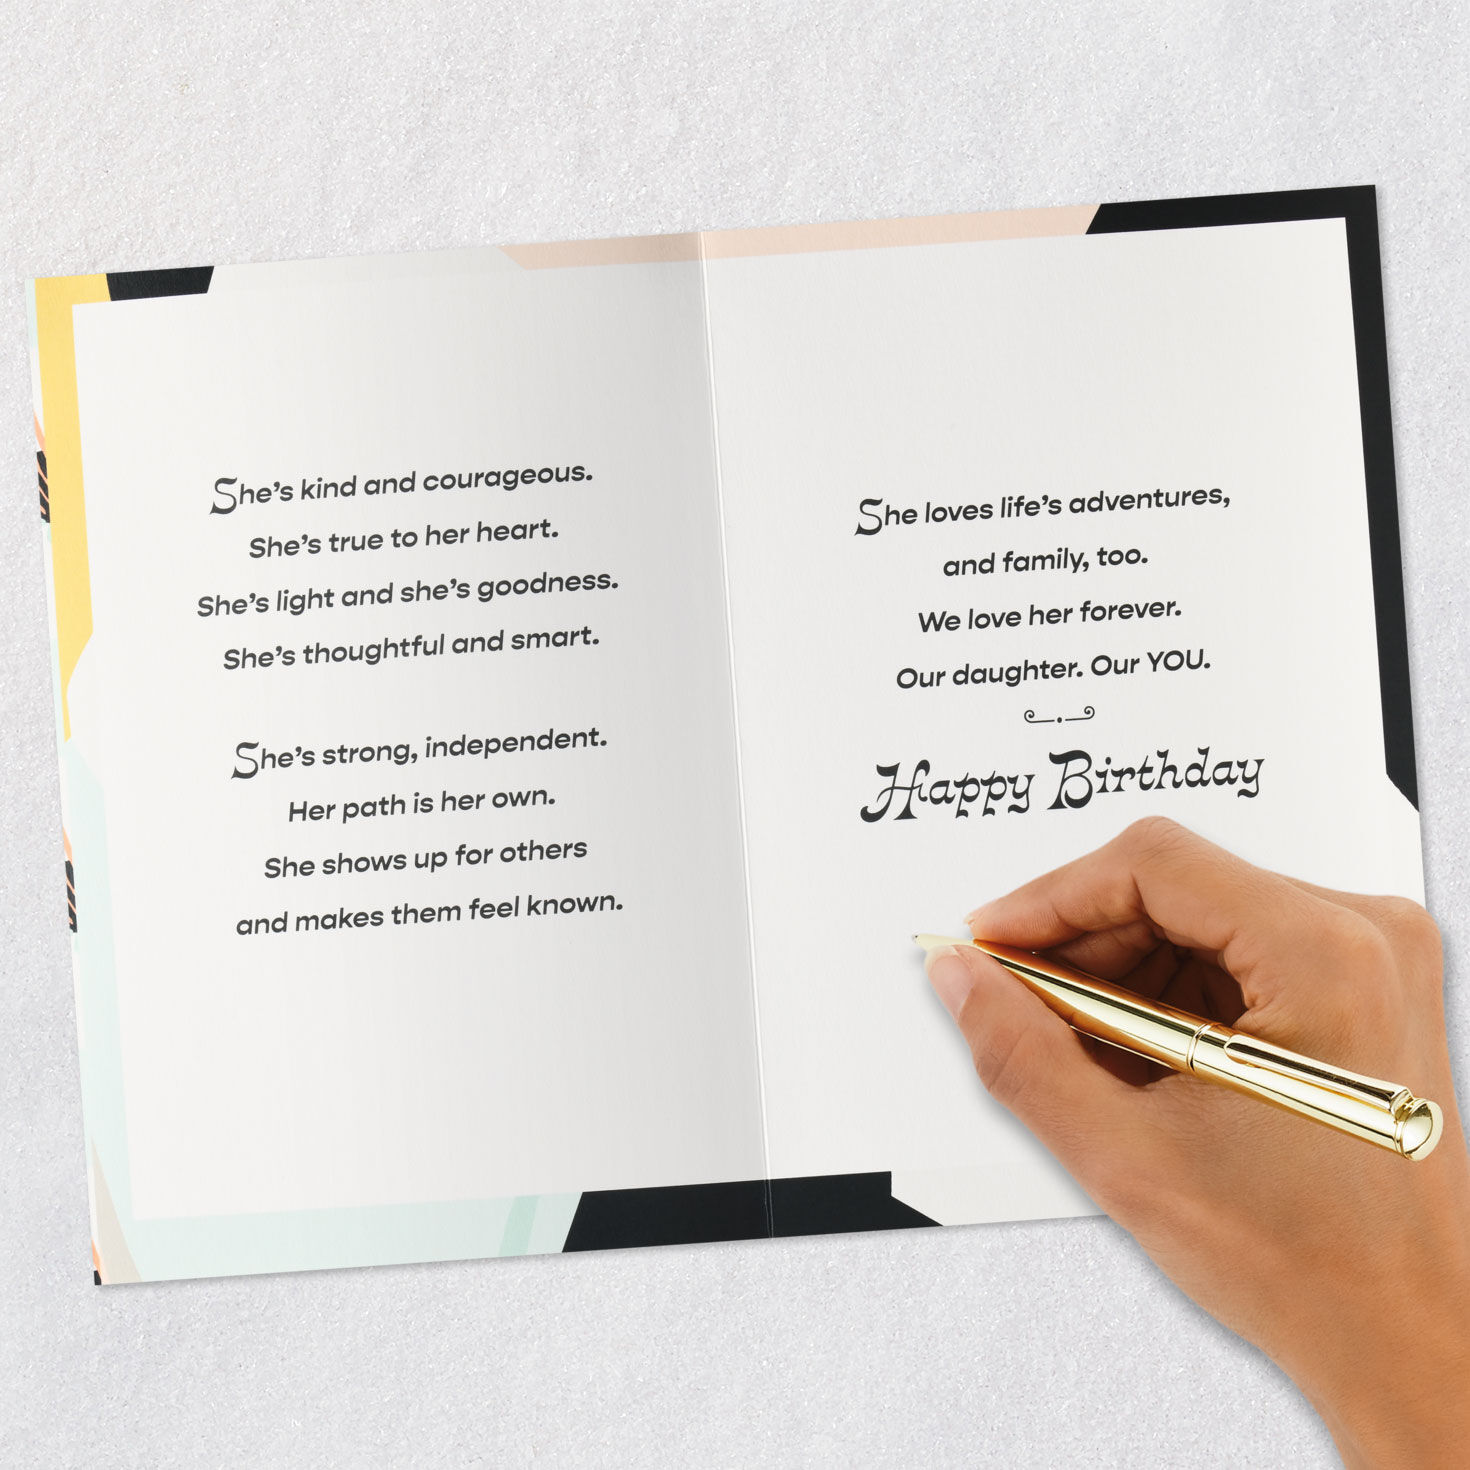 She's kind and courageous.
She's true to her heart.
She's light and she's goodness.
She's thoughtful and smart.
She's strong, independent.
Her path is her own.
She shows up for others
and makes them feel known.
She loves life's adventures,
and family, too.
We love her forever.
Our daughter. Our YOU.
Happy Birthday